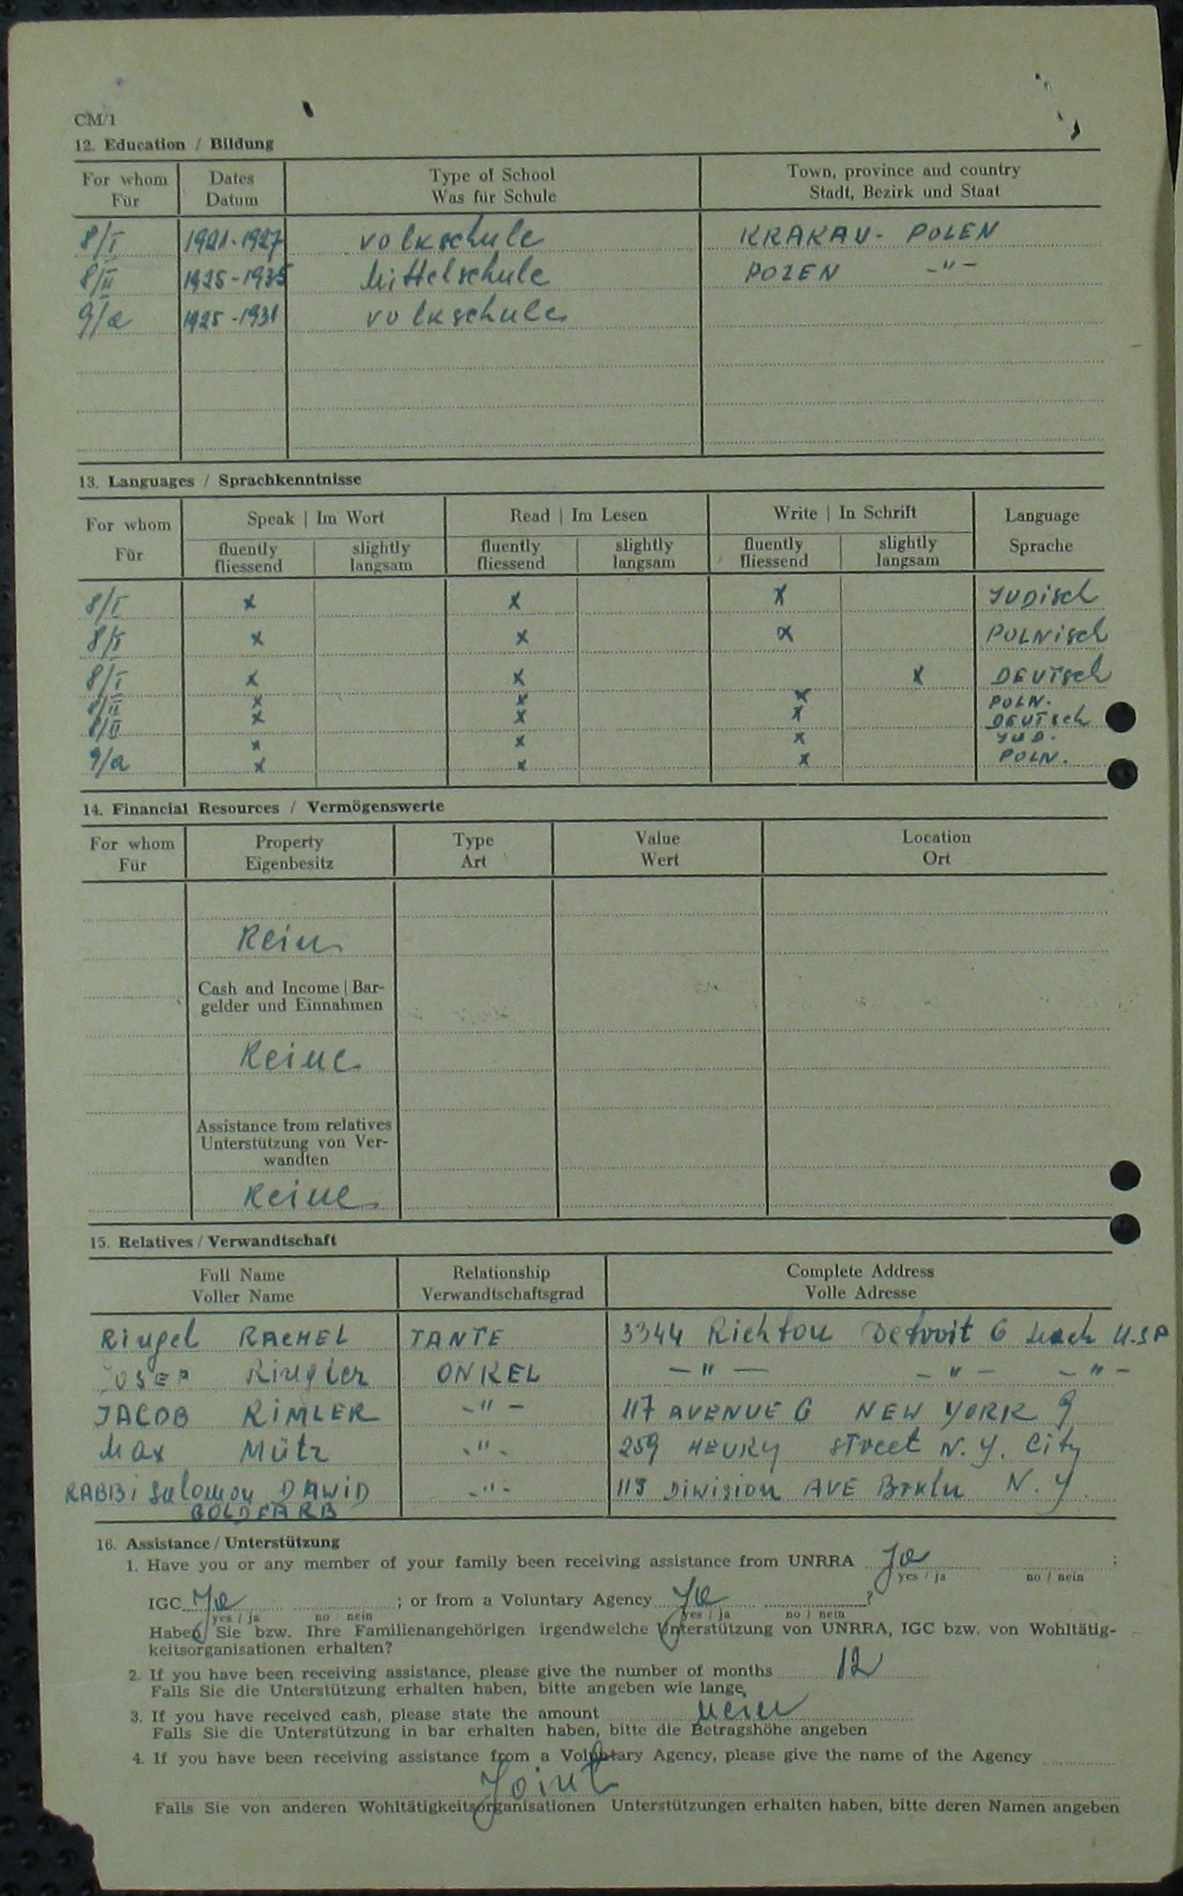 CM/1
12. Education / Bildung
For whom Dates Type of School Town, province and country
Für Datum Was für Schule Stadt, Bezirk und Staat
8/I 1921-1927 volkschule KRAKAU - POLEN
8/II 1925-1935 Mittelschule POZEN -"-
9/a 1925-1931 volkschule
13. Languages / Sprachkenntnisse
For whom Speak | Im Wort Read | Im Lesen Write | In Schrift Language
Für fluently slightly fluently slightly fluently slightly Sprache
fliessend langsam fliessend langsam fliessend langsam
8/I x x x JUDisch
8/I x x x POLNisch
8/I x x x DEUTsch
8/II x x x POLN.
8/II x x x DEUTsch
x x x JUD.
9/a x x x POLN.
14. Financial Resources / Vermögenswerte
For whom Property Type Value Location
Für Eigenbesitz Art Wert Ort
Kein
Cash and Income | Bar-
gelder und Einnahmen
Keine
Assistance from relatives
Unterstützung von Ver-
wandten
Keine
15. Relatives / Verwandtschaft
Full Name Relationship Complete Address
Voller Name Verwandtschaftsgrad Volle Adresse
Ringel RACHEL TANTE 3344 Richton Detroit 6 U.S.A
JOSEP Ringler ONKEL -"- -"- -"-
JACOB KIMLER -"- 117 AVENUE G NEW YORK 9
Max Mütz -"- 259 HENRY street N.Y. City
RABBi Salomon DAWID -"- 113 Division AVE Brkln N.Y.
GOLDFARB
16. Assistance / Unterstützung
1. Have you or any member of your family been receiving assistance from UNRRA Ja ;
yes / ja no / nein
IGC Ja ; or from a Voluntary Agency Ja ?
yes / ja no / nein yes / ja no / nein
Haben Sie bzw. Ihre Familienangehörigen irgendwelche Unterstützung von UNRRA, IGC bzw. von Wohltätig-
keitsorganisationen erhalten?
2. If you have been receiving assistance, please give the number of months 12
Falls Sie die Unterstützung erhalten haben, bitte angeben wie lange
3. If you have received cash, please state the amount nein
Falls Sie die Unterstützung in bar erhalten haben, bitte die Betragshöhe angeben
4. If you have been receiving assistance from a Voluntary Agency, please give the name of the Agency
Joint
Falls Sie von anderen Wohltätigkeitsorganisationen Unterstützungen erhalten haben, bitte deren Namen angeben